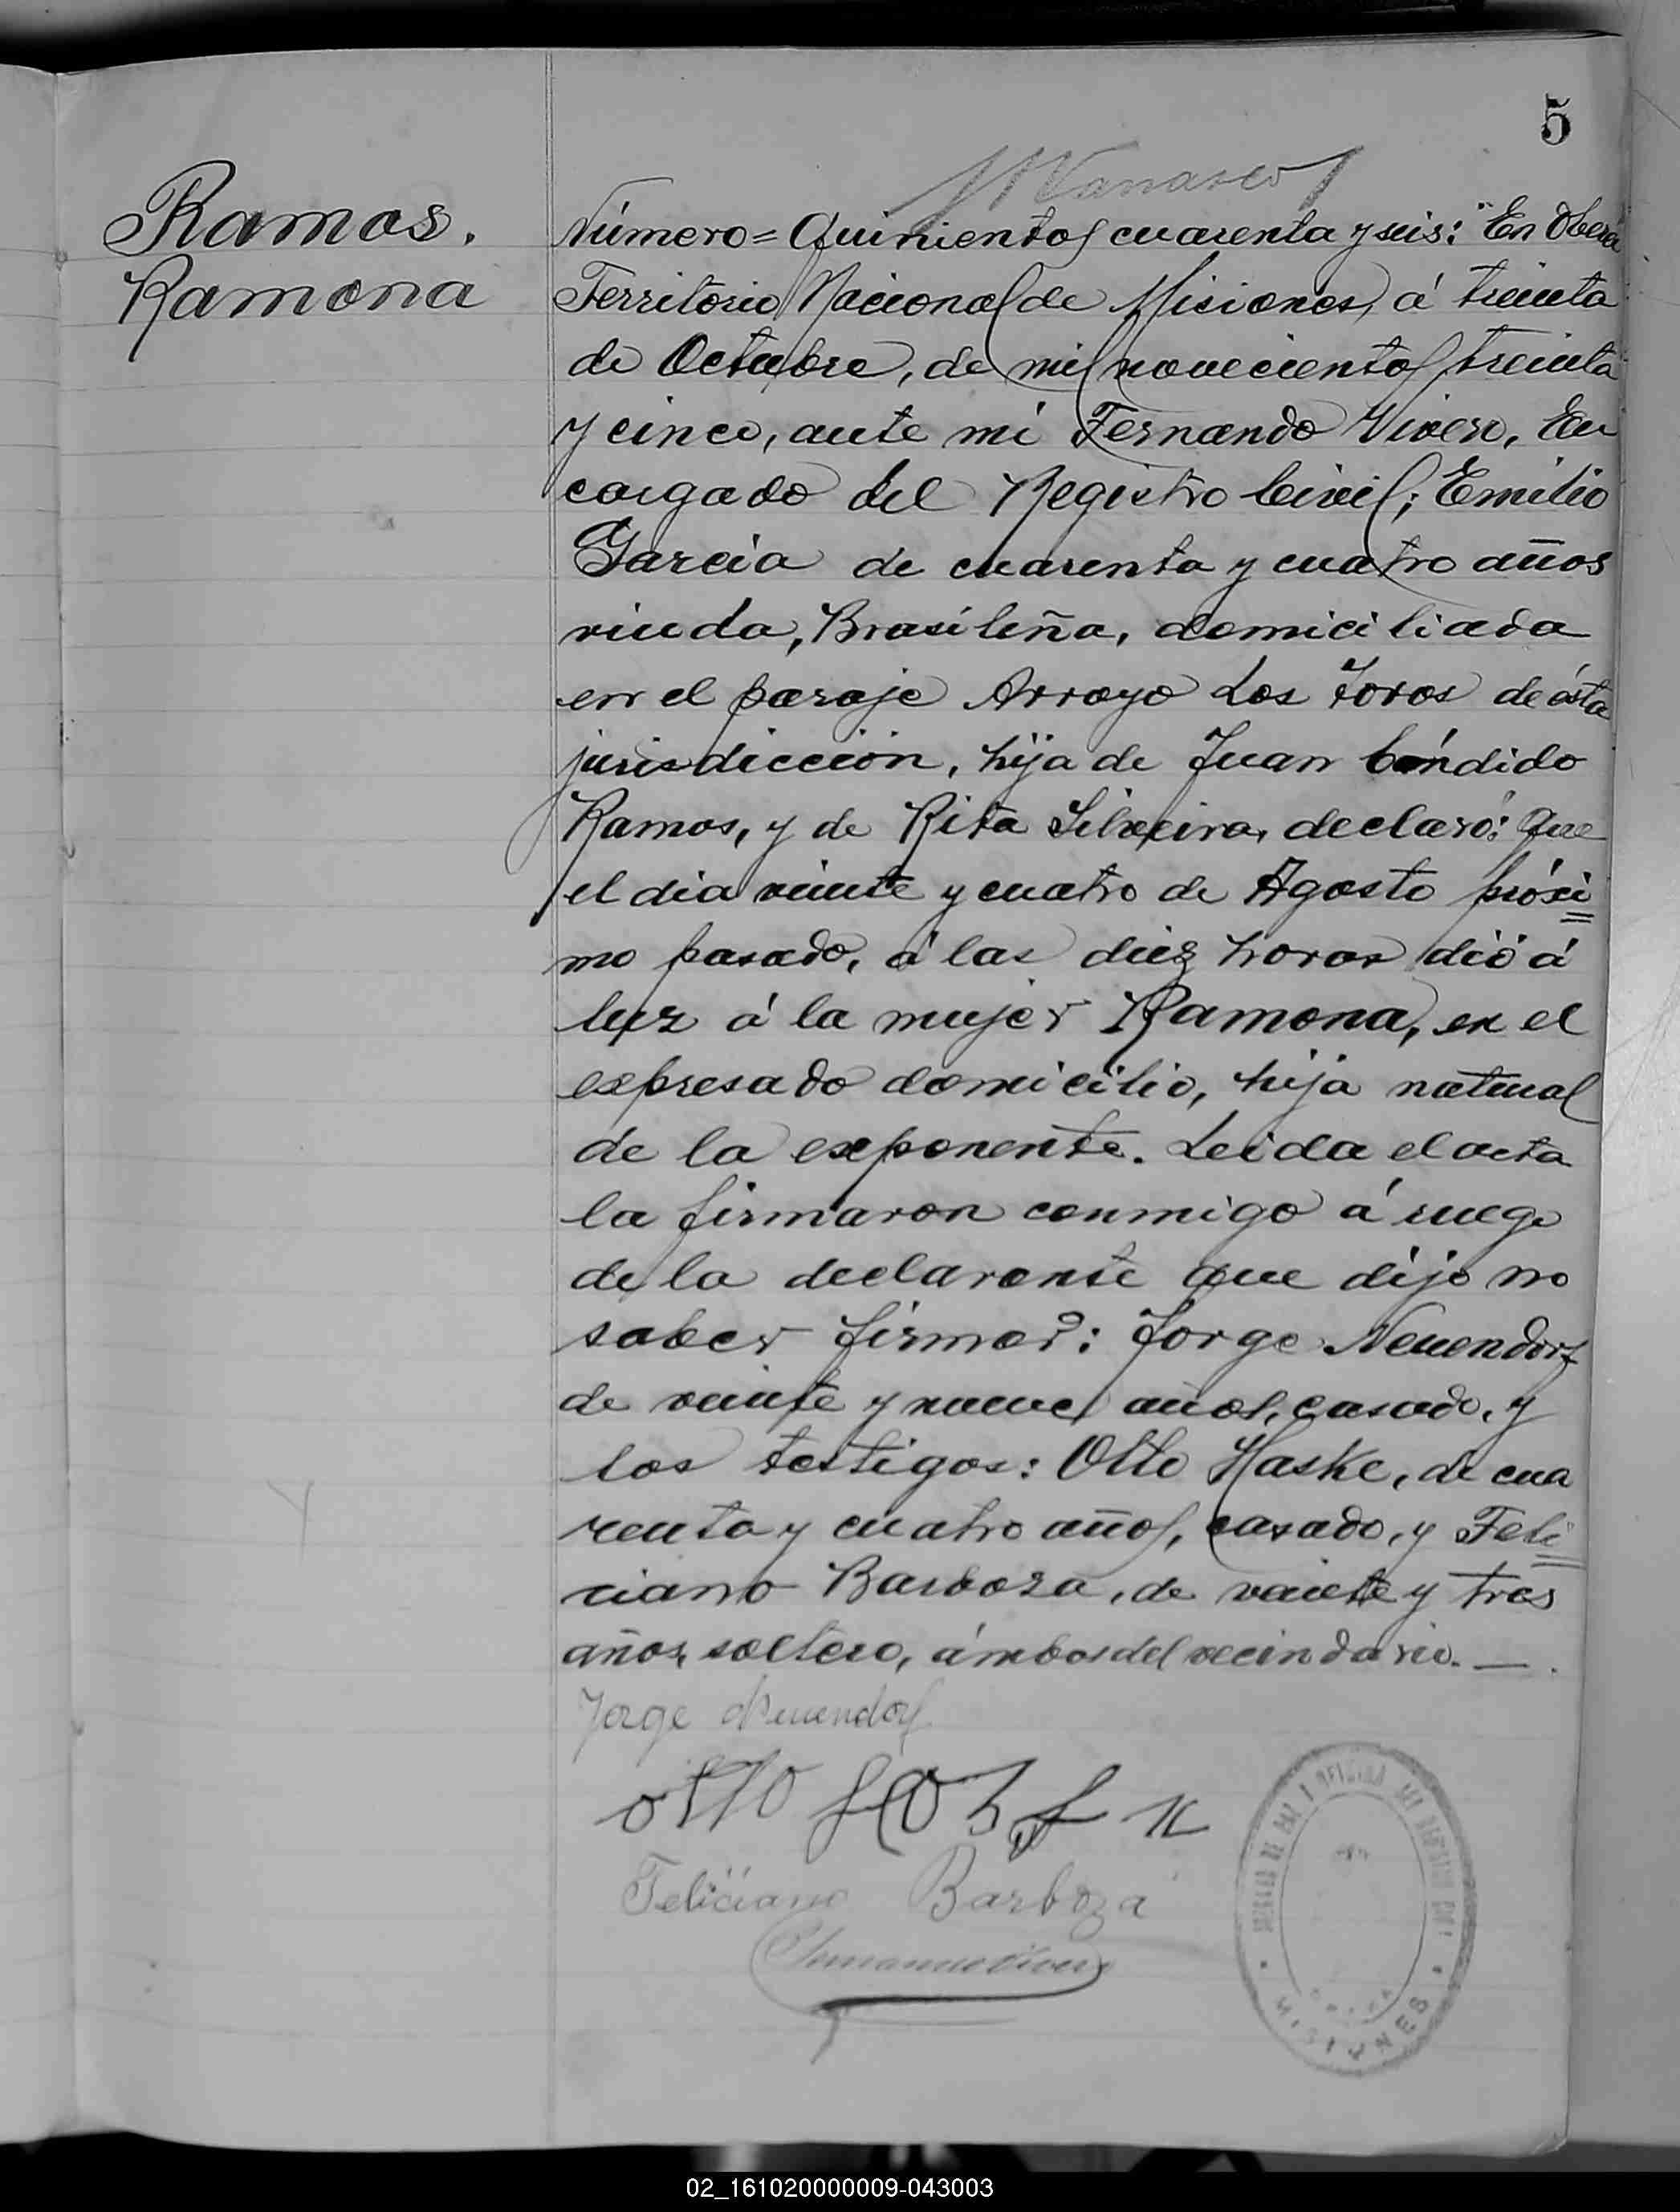 5
Ramos.
Ramona
Número = Quinientos cuarenta y seis: En Oberá
Territorio Nacional de Misiones, á treinta
de Octubre, de mil novecientos treinta
y cinco, ante mi Fernando Vivero, En
cargado del Registro Civil; Emilio
García de cuarenta y cuatro años
viuda, Brasileña, domiciliada
en el paraje Arroyo Los Toros de ésta
jurisdicción, hija de Juan Cándido
Ramos, y de Rita Silveira, declaró: Que
el dia veinte y cuatro de Agosto próxi
mo pasado, á las diez horas dió á
luz á la mujer Ramona, en el
expresado domicilio, hija natural
de la exponente. Leida el acta
la firmaron conmigo á ruego
de la declarante que dijo no
saber firmar: Jorge Neuendorf
de veinte y nueve años, casado, y
los testigos: Otto Haske, de cua
renta y cuatro años, casado, y Feli
ciano Barboza, de veinte y tres
años, soltero, ámbos del vecindario. —
Jorge Neuendorf
Otto
Feliciano Barboza
MISIONES
02_161020000009-043003